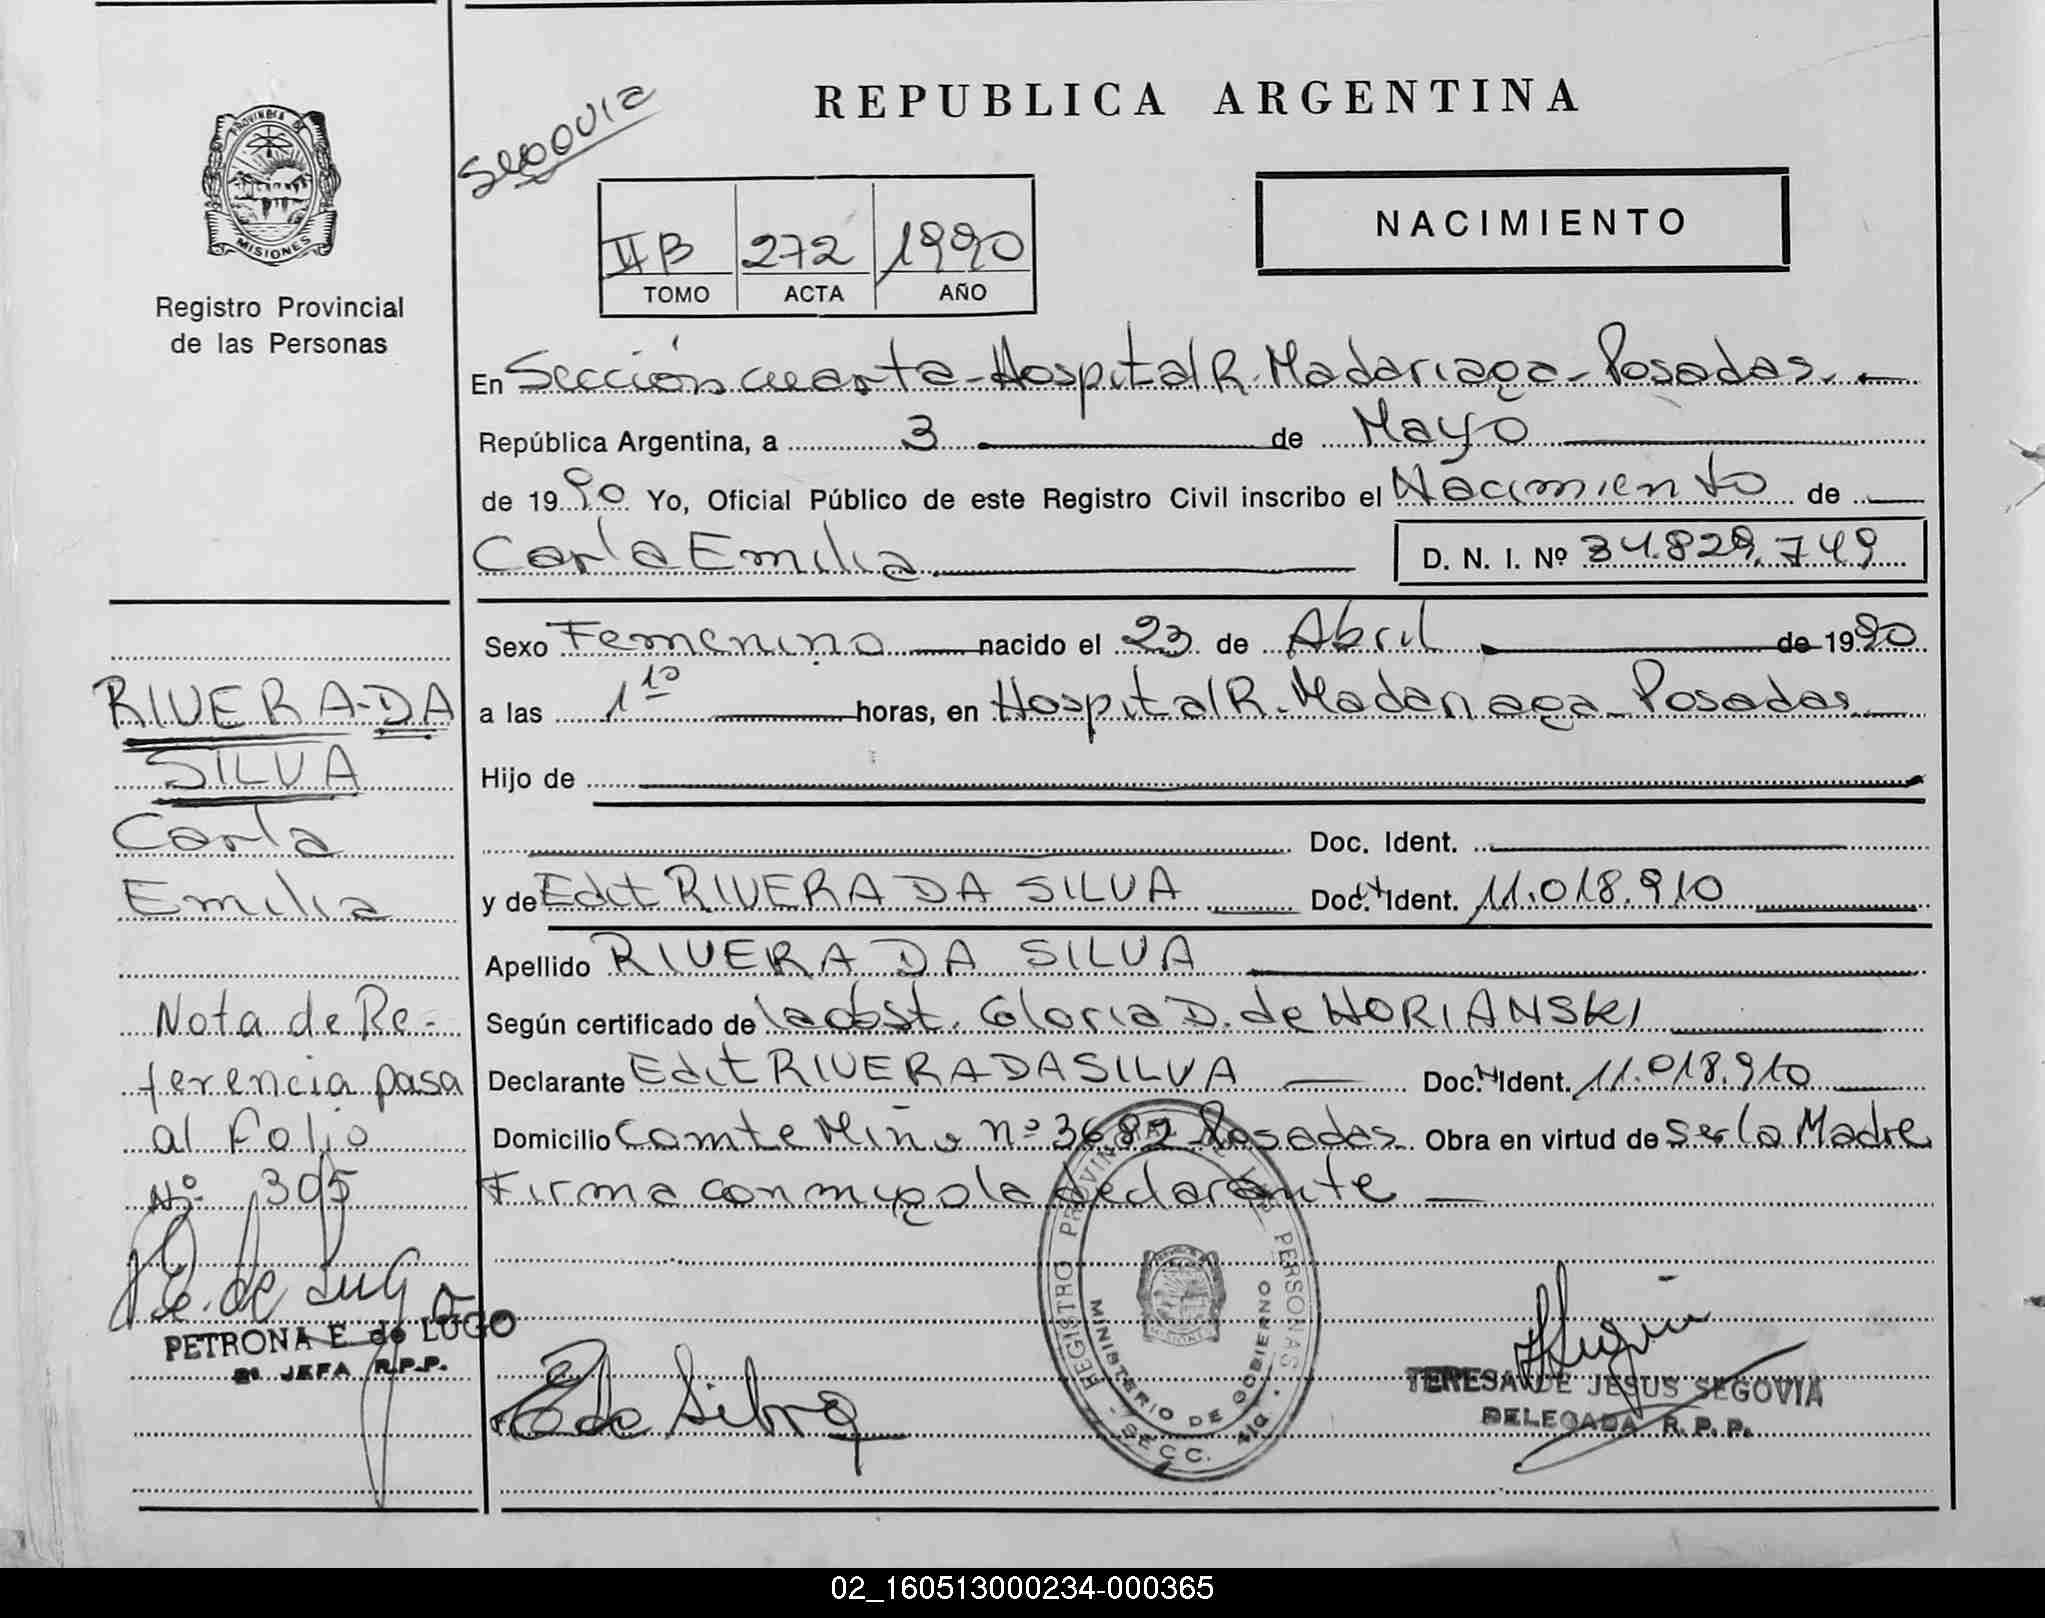 PROVINCIA DE
MISIONES
Registro Provincial
de las Personas
RIVERA-DA
SILVA
Carla
Emilia
Nota de Re-
ferencia pasa
al Folio
Nº 305
P.E. de Lugo
PETRONA E. de LUGO
JEFA R.P.P.
Segovia
REPUBLICA ARGENTINA
NACIMIENTO
II B 272 1990
TOMO ACTA AÑO
En Sección cuarta - Hospital R. Madariaga - Posadas. -
República Argentina, a 3 de Mayo
de 1990 Yo, Oficial Público de este Registro Civil inscribo el Nacimiento de
Carla Emilia D. N. I. Nº 34.829.749
Sexo Femenino nacido el 23 de Abril de 1990
a las 1 10 horas, en Hospital R. Madariaga - Posadas
Hijo de
Doc. Ident.
y de Edit RIVERA DA SILVA Doc. Ident. 11.018.910
Apellido RIVERA DA SILVA
Según certificado de la obst. Gloria D. de HORIANSKI
Declarante Edit RIVERA DA SILVA Doc. Ident. 11.018.910
Domicilio Comte Miño nº 3682 Posadas Obra en virtud de ser la Madre
Firma conmigo la declarante -
REGISTRO PROVINCIAL DE LAS PERSONAS
MINISTERIO DE GOBIERNO
SECC. 4ta.
MISIONES
E da Silva
TERESA DE JESUS SEGOVIA
DELEGADA R. P. P.
02_160513000234-000365